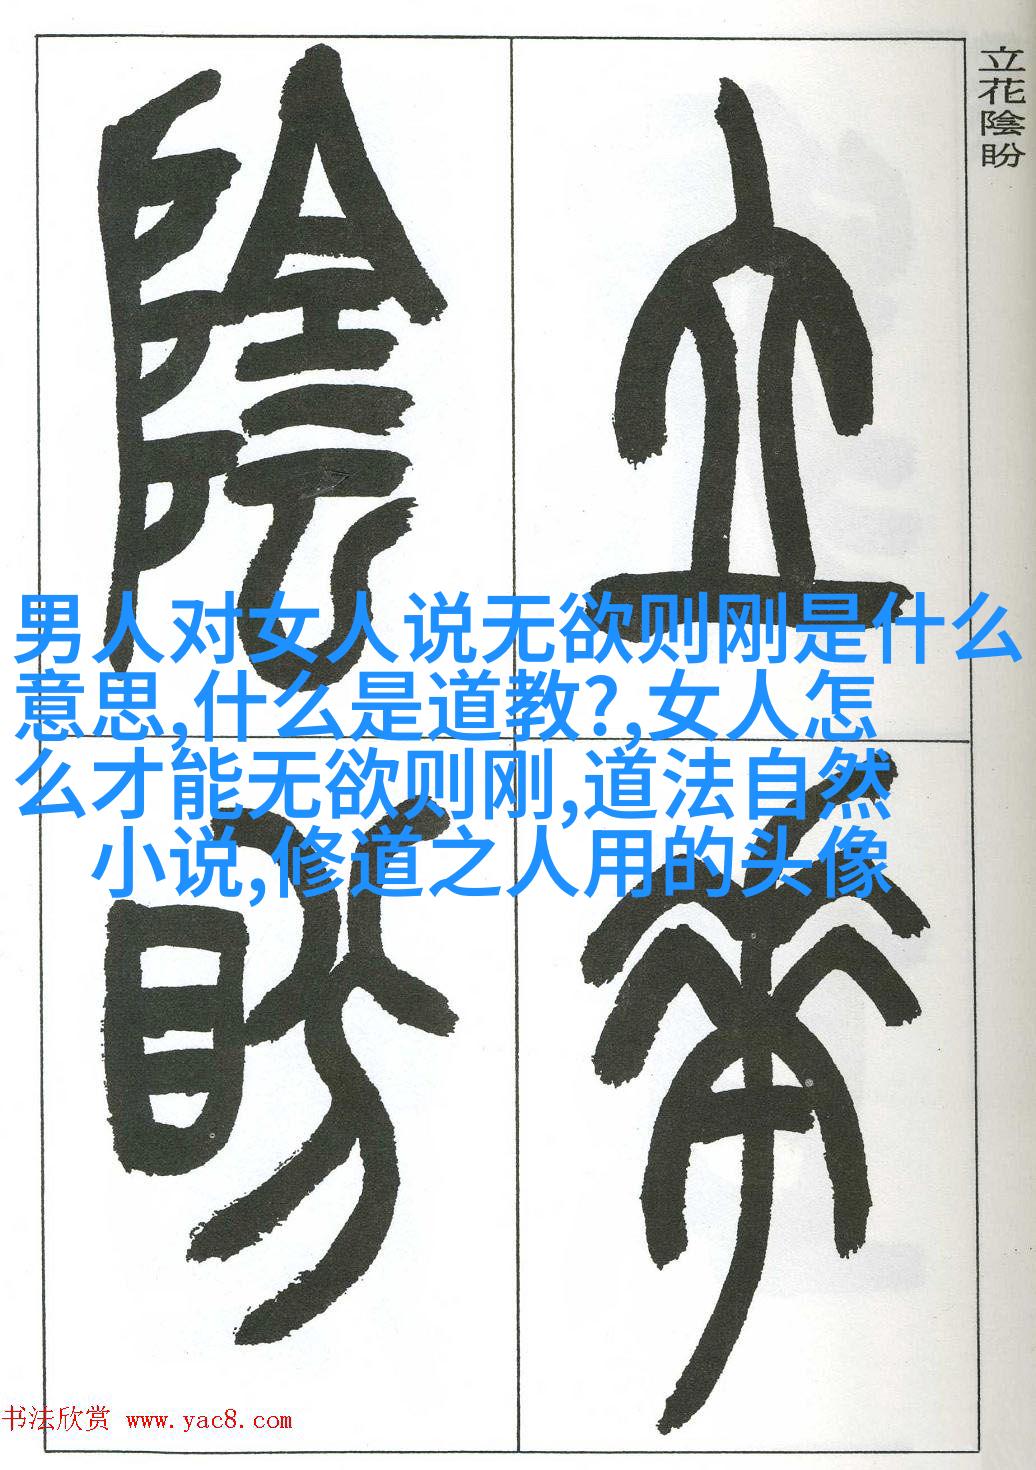 立花陰盼
立
花
陰
盼
男人对女人说无欲则刚是什么
意思,什么是道教?,女人怎
么才能无欲则刚,道法自然
小说,修道之人用的头像
书法欣赏 www.yac8.com